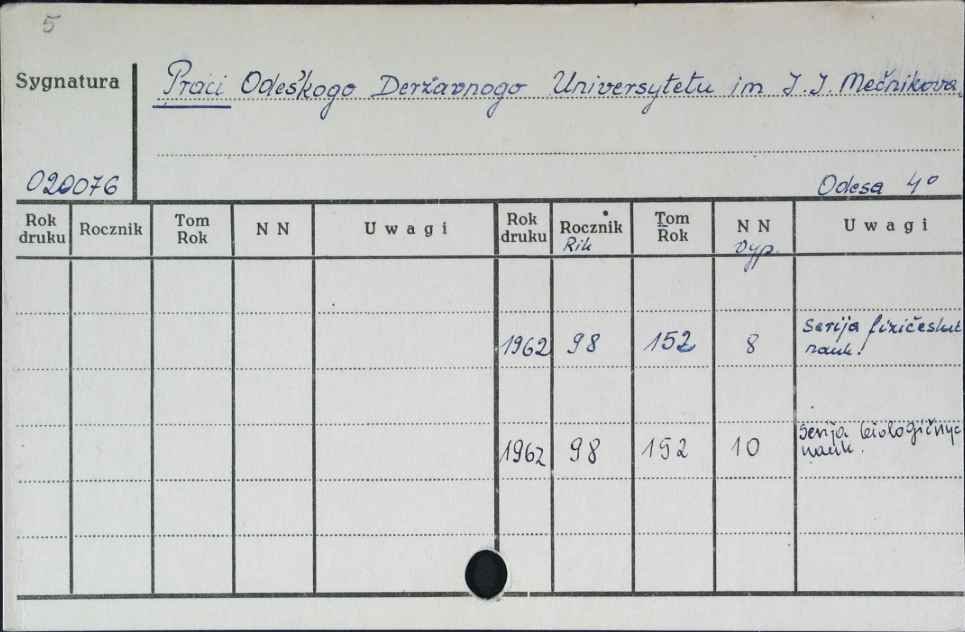 5
Sygnatura
Praci Odeśkogo Deržavnogo Universytetu im I. I. Mečnikova.
020076
Odesa 4°
Rok druku Rocznik Tom Rok N N Uwagi Rok druku Rocznik Tom Rok N N Uwagi
Rik Vyp.
1962 98 152 8 Serija fizičeskich
nauk.
1962 98 152 10 Serija biologičnyc
nauk.